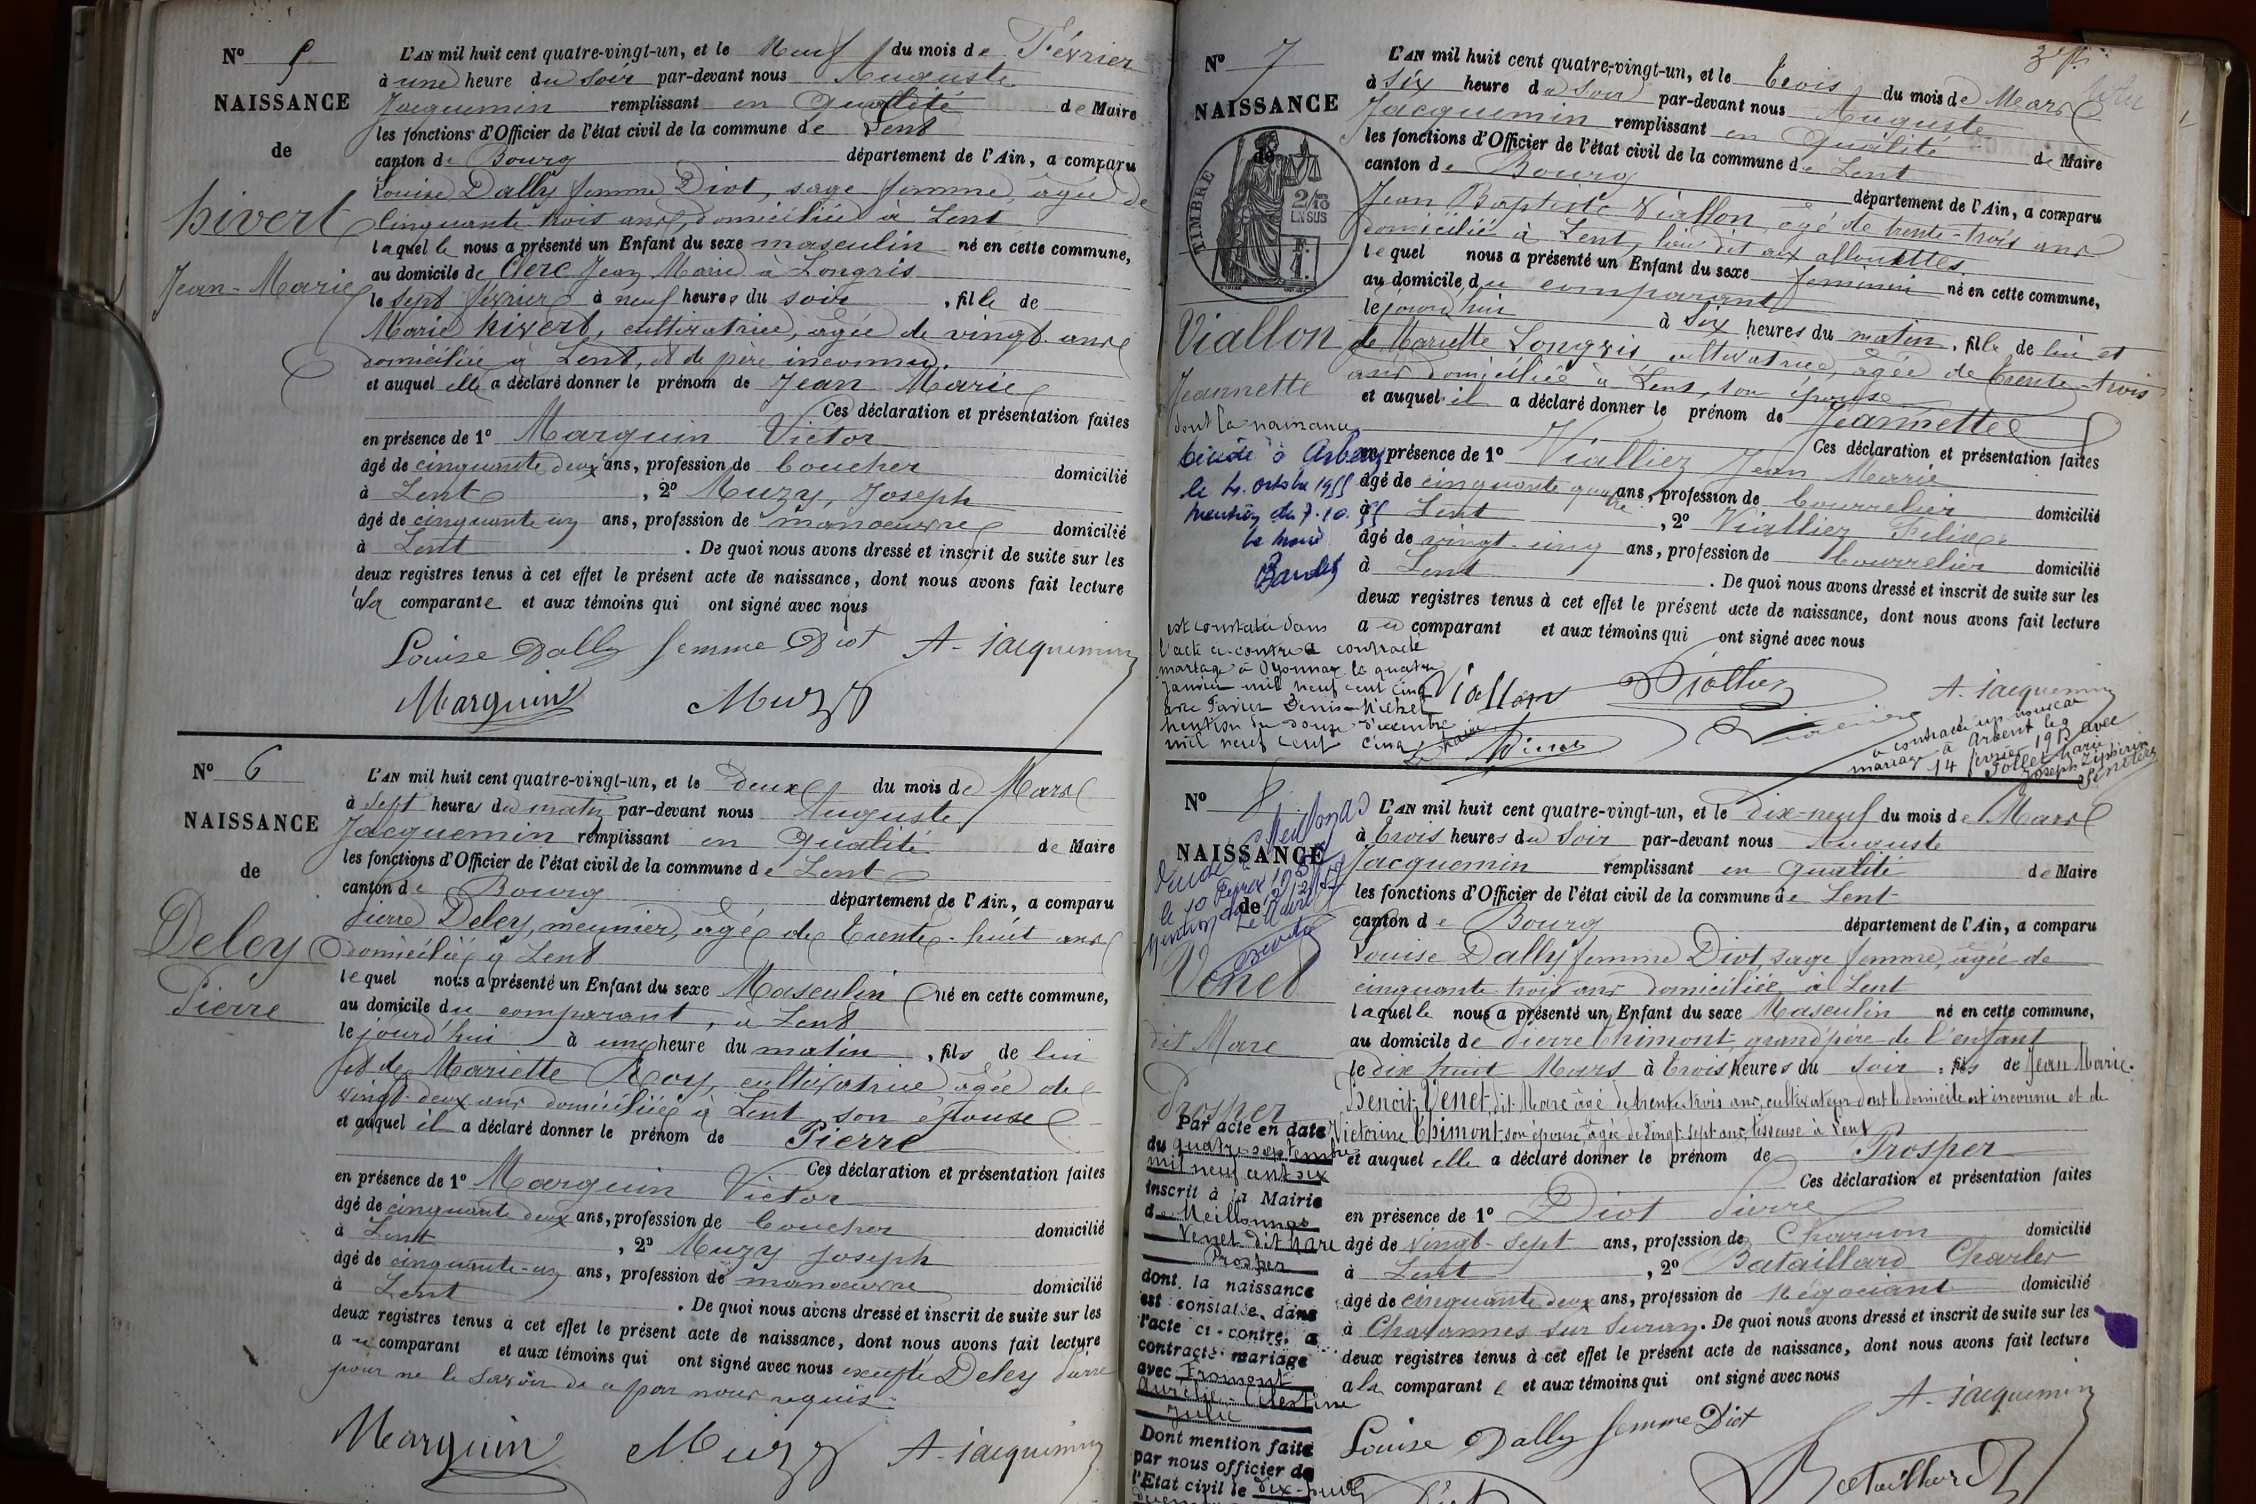 N° 5
NAISSANCE
de
hivert
Jean-Marie
L'AN mil huit cent quatre-vingt-un, et le Neuf du mois de Février
à une heure du soir par-devant nous Auguste
Jacquemin remplissant en qualité de Maire
les fonctions d'Officier de l'état civil de la commune de Lent
canton de Bourg département de l'Ain, a comparu
Louise Dally femme Diot, sage femme, âgée de
cinquante trois ans, domiciliée à Lent
laquelle nous a présenté un Enfant du sexe masculin né en cette commune,
au domicile de Clerc Jean Marie à Longris
le sept février à neuf heures du soir, fils de
Marie hivert, cultivatrice, âgée de vingt ans
domiciliée à Lent, et de père inconnu.
et auquel elle a déclaré donner le prénom de Jean Marie
Ces déclaration et présentation faites
en présence de 1° Marguin Victor
âgé de cinquante deux ans, profession de boucher domicilié
à Lent, 2° Muzy, Joseph
âgé de cinquante un ans, profession de manoeuvre domicilié
à Lent. De quoi nous avons dressé et inscrit de suite sur les
deux registres tenus à cet effet le présent acte de naissance, dont nous avons fait lecture
à la comparante et aux témoins qui ont signé avec nous
Louise Dally femme Diot A. Jacquemin
Marguin Muzy
N° 6
NAISSANCE
de
Deley
Pierre
L'AN mil huit cent quatre-vingt-un, et le deux du mois de Mars
à sept heures du matin par-devant nous Auguste
Jacquemin remplissant en qualité de Maire
les fonctions d'Officier de l'état civil de la commune de Lent
canton de Bourg département de l'Ain, a comparu
Pierre Deley, meunier, âgé de trente-huit ans
domicilié à Lent
lequel nous a présenté un Enfant du sexe Masculin né en cette commune,
au domicile du comparant, à Lent
le jourd'hui à une heure du matin, fils de lui
et de Mariette Roy, cultivatrice âgée de
vingt-deux ans domiciliée à Lent son épouse
et auquel il a déclaré donner le prénom de Pierre
Ces déclaration et présentation faites
en présence de 1° Marguin Victor
âgé de cinquante deux ans, profession de boucher domicilié
à Lent, 2° Muzy Joseph
âgé de cinquante-un ans, profession de manoeuvre domicilié
à Lent. De quoi nous avons dressé et inscrit de suite sur les
deux registres tenus à cet effet le présent acte de naissance, dont nous avons fait lecture
au comparant et aux témoins qui ont signé avec nous excepté Deley Pierre
pour ne le savoir de ce par nous requis.
Marguin Muzy A. Jacquemin
N° 7
NAISSANCE
de
TIMBRE
2/10
EN SUS
F.
Viallon
Jeannette
dont la naissance
Décédée à Arbent
le 4 octobre 1955
mention du 7.10.55
Le maire
est constatée dans
l'acte ci-contre a contracté
mariage à Oyonnax le quatre
janvier mil neuf cent cinq
avec
mention du douze décembre
mil neuf cent cinq
L'AN mil huit cent quatre-vingt-un, et le trois du mois de Mars
à six heure du soir par-devant nous Auguste
Jacquemin remplissant en qualité de Maire
les fonctions d'Officier de l'état civil de la commune de Lent
canton de Bourg département de l'Ain, a comparu
Jean Baptiste Viallon, âgé de trente-trois ans
domicilié à Lent, lieu dit aux allouettes.
lequel nous a présenté un Enfant du sexe féminin né en cette commune,
au domicile du comparant
le jourd'hui à six heures du matin, fille de lui et
de Mariette Longris cultivatrice, âgée de trente-trois
ans domiciliée à Lent, son épouse
et auquel il a déclaré donner le prénom de Jeannette
Ces déclaration et présentation faites
en présence de 1° Viallier Jean Marie
âgé de cinquante quatre ans, profession de bourrelier domicilié
à Lent, 2° Viallier Felix
âgé de vingt-cinq ans, profession de bourrelier domicilié
à Lent. De quoi nous avons dressé et inscrit de suite sur les
deux registres tenus à cet effet le présent acte de naissance, dont nous avons fait lecture
au comparant et aux témoins qui ont signé avec nous
Viallon Viallier A. Jacquemin
a contracté un nouveau
mariage à Arbent le
14 février 19 avec
Joseph
N° 8
NAISSANCE
de
Décédé à Meillonnas
le 10
Le Maire
Venet
dit Mare
Prosper
Par acte en date
du quatre septembre
mil neuf cent six
inscrit à la Mairie
de Meillonnas
Venet dit Mare
Prosper
dont la naissance
est constatée dans
l'acte ci-contre, a
contracté mariage
avec Froment
Aurélie Célestine
Julie
Dont mention faite
par nous officier de
l'Etat civil le dix-huit
L'AN mil huit cent quatre-vingt-un, et le dix-neuf du mois de Mars
à trois heures du soir par-devant nous Auguste
Jacquemin remplissant en qualité de Maire
les fonctions d'Officier de l'état civil de la commune de Lent
canton de Bourg département de l'Ain, a comparu
Louise Dally femme Diot, sage femme, âgée de
cinquante trois ans domiciliée à Lent
laquelle nous a présenté un Enfant du sexe Masculin né en cette commune,
au domicile de Pierre Chimont, grand'père de l'enfant
le dix huit Mars à trois heures du soir, fils de Jean Marie
Benoit Venet dit Mare âgé de trente trois ans, cultivateur dont le domicile est inconnu et de
Victorine Chimont, son épouse, âgée de vingt sept ans, tisseuse à Lent
et auquel elle a déclaré donner le prénom de Prosper
Ces déclaration et présentation faites
en présence de 1° Diot Pierre
âgé de vingt-sept ans, profession de Charron domicilié
à Lent, 2° Bataillard Charles
âgé de cinquante deux ans, profession de Négociant domicilié
à Chavannes sur Suran. De quoi nous avons dressé et inscrit de suite sur les
deux registres tenus à cet effet le présent acte de naissance, dont nous avons fait lecture
a la comparante et aux témoins qui ont signé avec nous
A. Jacquemin
Louise Dally femme Diot
Bataillard